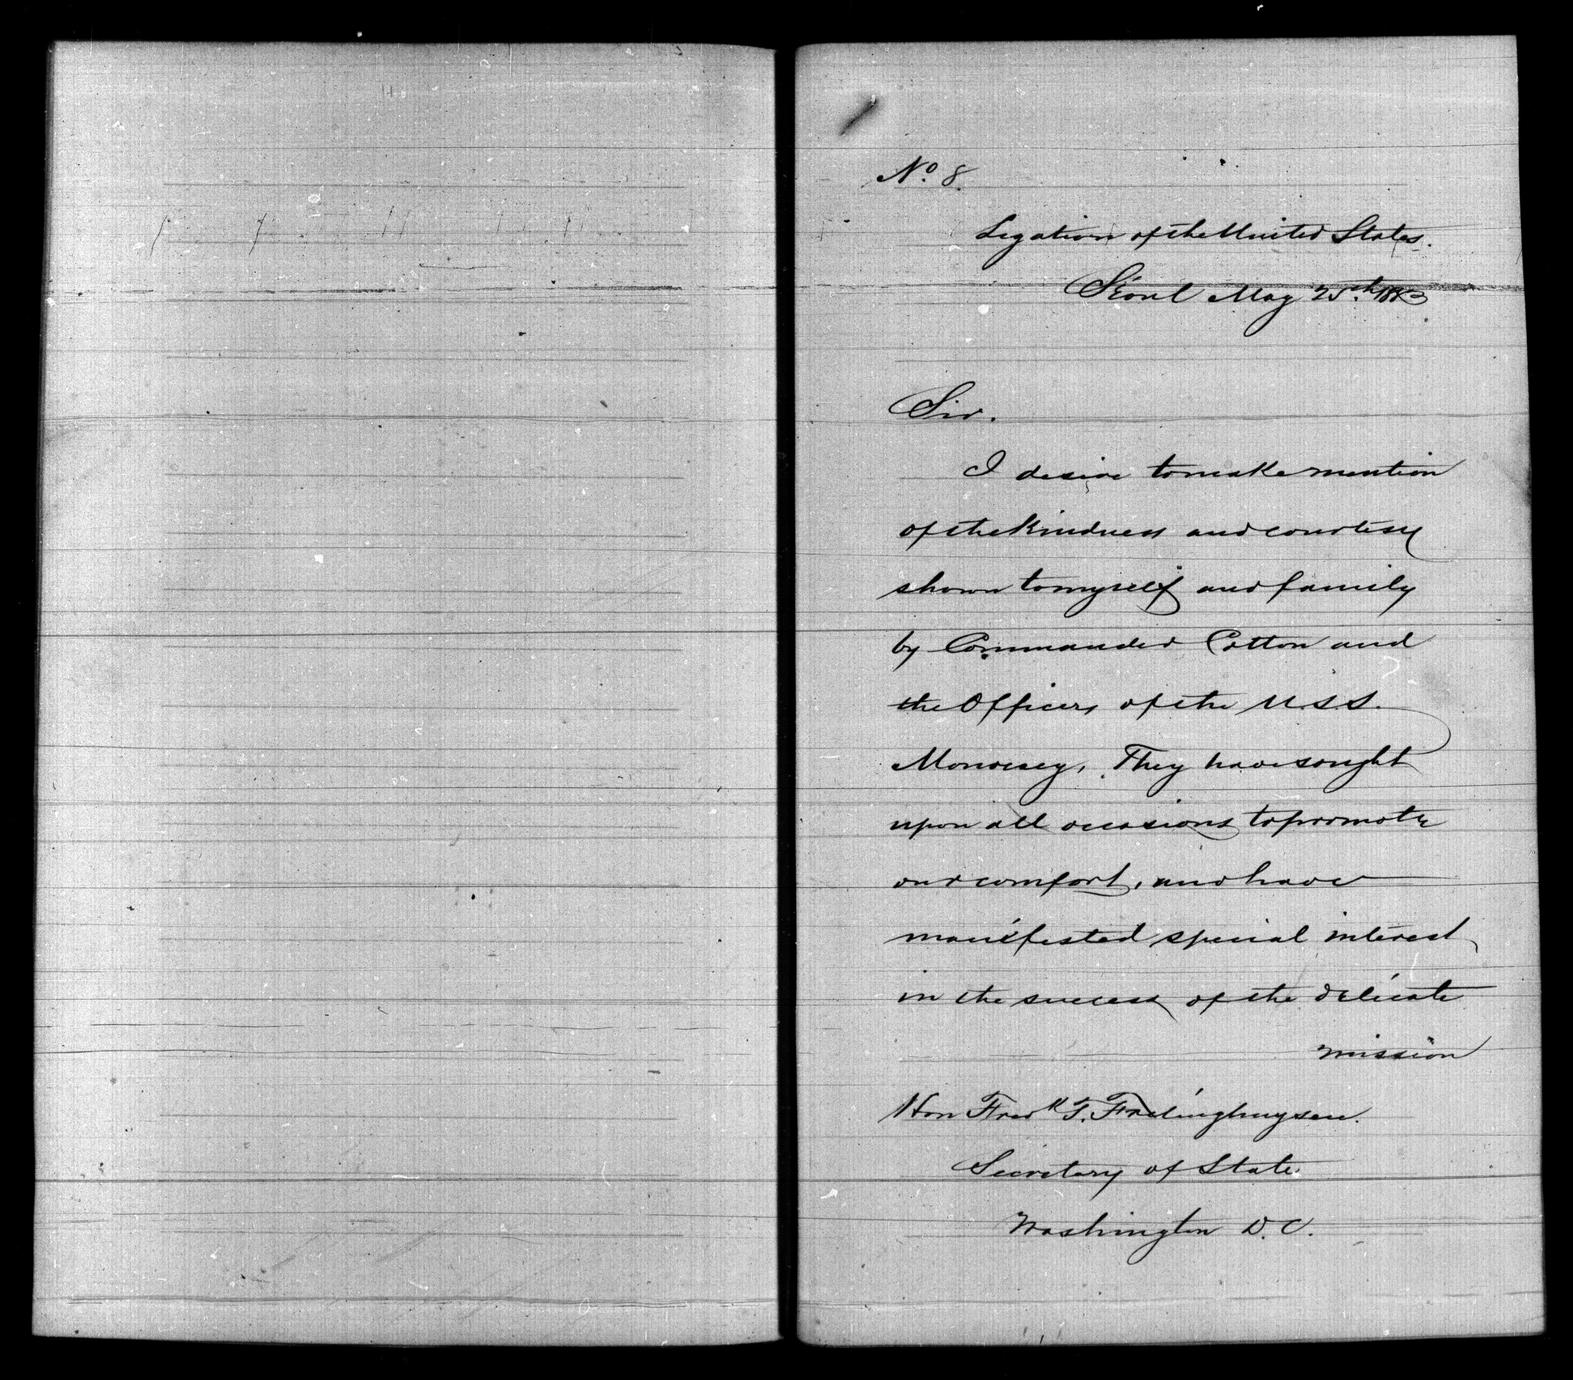 No. 8.
Legation of the United States.
Séoul May 25th 1883
Sir.
I desire to make mention
of the kindness and courtesy
shown to myself and family
by Commander Cotton and
the Officers of the U.S.S.
Monocacy. They have sought
upon all occasions to promote
our comfort, and have
manifested special interest
in the success of the delicate
mission
Hon Fredk T. Frelinghuysen.
Secretary of State.
Washington D.C.